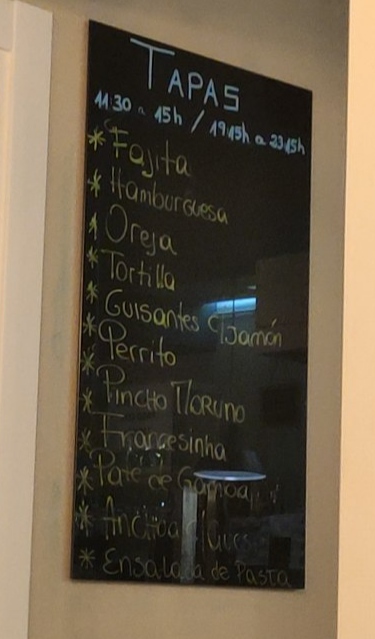 TAPAS
11:30 a 15h / 19:15h a 23:15h
* Fajita
* Hamburguesa
* Oreja
* Tortilla
* Guisantes C/Jamón
* Perrito
* Pincho Moruno
* Francesinha
* Paté de
* Anchoa
* Ensalada de Pasta